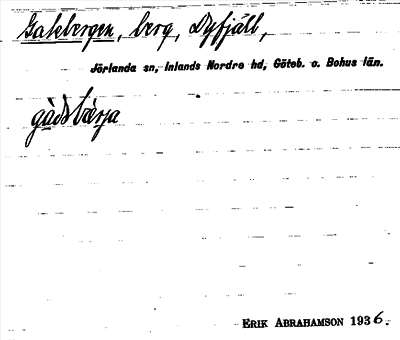 Gatebergen, berg, Dyfjäll,
Jörlanda sn, Inlands Nordre hd, Göteb. o. Bohus län.
gàdsbærja
ERIK ABRAHAMSON 1936.